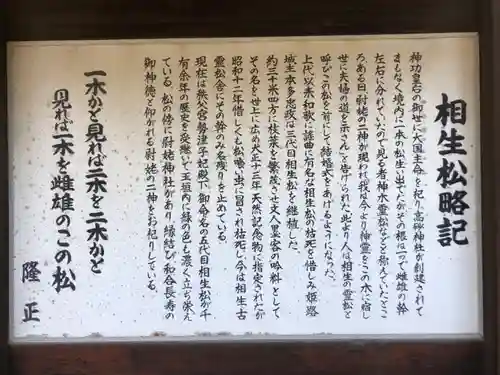 相生松略記
神功皇后の御世に大国主命を祀り高砂神社が創建されて
まもなく境内に一本の松生い出でたがその根は一つで雌雄の幹
左右に分れていたので見る者神木霊松などと称えていたとこ
ろ、ある日、尉姥の二神が現われ「我は今より神霊をこの木に宿し
世に夫婦の道を示さん」と告げられた此より人は相生の霊松と
呼びこの松を前にして結婚式をあげるようになった。
上代以来和歌に謡曲に有名な相生の松の枯死を惜しみ姫路
城主本多忠政は三代目相生松を継植した。
約三十米四方に枝葉を繁茂させ文人墨客の吟料として
その名を世上に広め大正十三年天然記念物に指定されたが
昭和十二年惜しくも松喰い虫に冒され枯死し今は相生古
霊松舎にその幹のみ名残りを止めている。
現在は秩父宮勢津子妃殿下御命名の五代目相生松が千
有余年の歴史を受け継いで玉垣内に緑の色も濃く立ち栄え
ている。松の傍に尉姥神社があり、縁結び和合長寿の
御神徳と仰がれる尉姥の二神をお祀りしている。
一木かと見れば二木を二木かと
見れば一木を雌雄のこの松
隆正